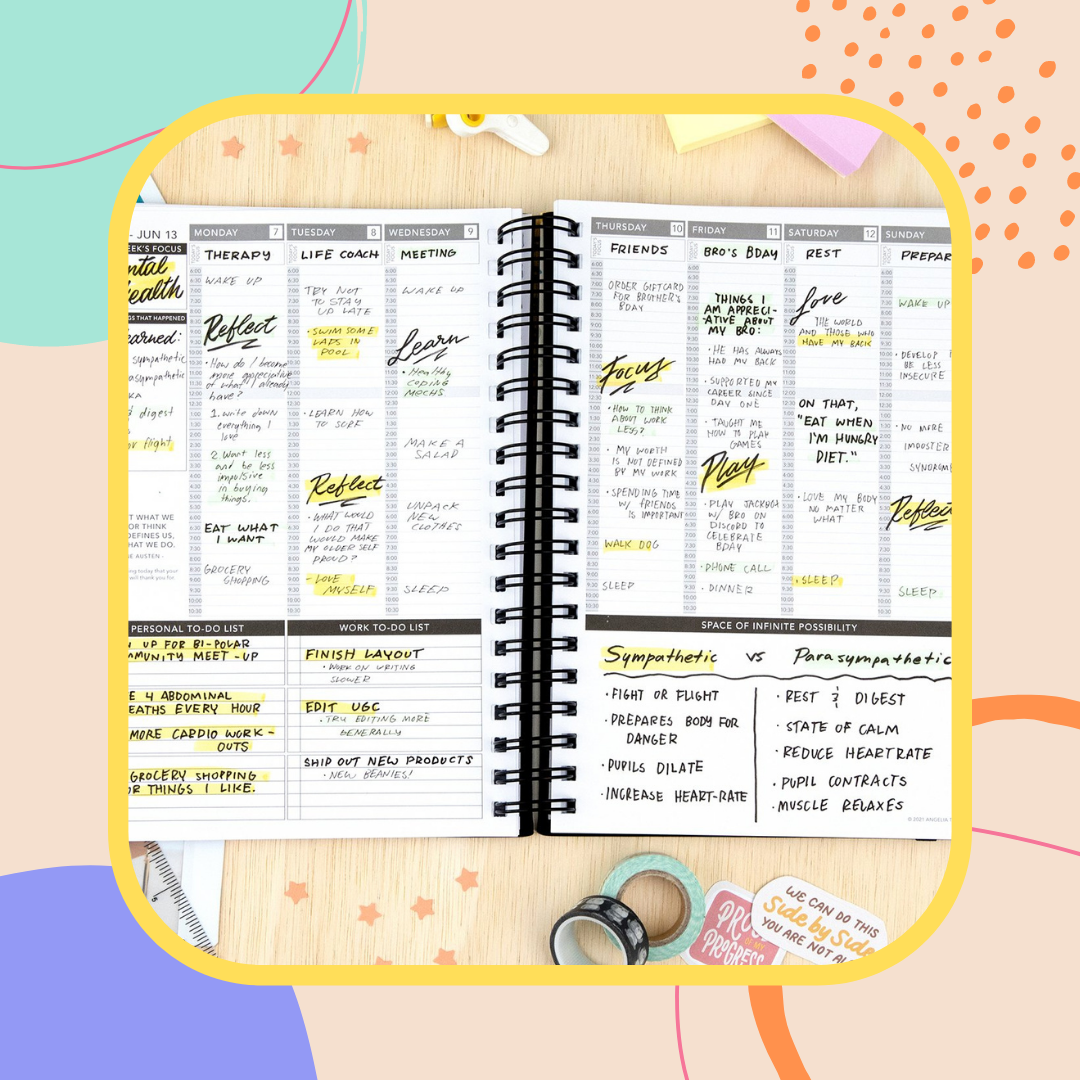 - JUN 13
EEK'S FOCUS
ntal
ealth
NGS THAT HAPPENED
earned:
sympathetic
asympathetic
KA
d digest
or flight
T WHAT WE
OR THINK
DEFINES US,
HAT WE DO.
E AUSTEN -
ng today that your
will thank you for.
MONDAY 7
THERAPY
WAKE UP
Reflect
• How do I become
more appreciative
of what I already
have?
1. Write down
everything I
love
2. Want less
and be less
impulsive
in buying
things.
EAT WHAT
I WANT
GROCERY
SHOPPING
TUESDAY 8
LIFE COACH
TRY NOT
TO STAY
UP LATE
• SWIM SOME
LAPS IN
POOL
• LEARN HOW
TO SURF
Reflect
• WHAT COULD
I DO THAT
WOULD MAKE
MY OLDER SELF
PROUD?
- LOVE
MYSELF
WEDNESDAY 9
MEETING
WAKE UP
Learn
• Healthy
coping
mechs
MAKE A
SALAD
UNPACK
NEW
CLOTHES
SLEEP
PERSONAL TO-DO LIST
N UP FOR BI-POLAR
MMUNITY MEET-UP
E 4 ABDOMINAL
EATHS EVERY HOUR
MORE CARDIO WORK-
OUTS
GROCERY SHOPPING
OR THINGS I LIKE.
WORK TO-DO LIST
FINISH LAYOUT
• WORK ON WRITING
SLOWER
EDIT UGC
• TRY EDITING MORE
GENERALLY
SHIP OUT NEW PRODUCTS
• NEW BEANIES!
THURSDAY 10
FRIENDS
ORDER GIFTCARD
FOR BROTHER'S
BDAY
Focus
• HOW TO THINK
ABOUT WORK
LESS?
• MY WORTH
IS NOT DEFINED
BY MY WORK
• SPENDING TIME
W/ FRIENDS
IS IMPORTANT
WALK DOG
SLEEP
FRIDAY 11
BRO'S BDAY
THINGS I
AM APPRECI-
-ATIVE ABOUT
MY BRO:
• HE HAS ALWAYS
HAD MY BACK
• SUPPORTED MY
CAREER SINCE
DAY ONE
• TAUGHT ME
HOW TO PLAY
GAMES
Play
• PLAY JACKBOX
W/ BRO ON
DISCORD TO
CELEBRATE
BDAY
• PHONE CALL
• DINNER
SATURDAY 12
REST
Love
THE WORLD
AND THOSE WHO
HAVE MY BACK
ON THAT,
"EAT WHEN
I'M HUNGRY
DIET."
• LOVE MY BODY
NO MATTER
WHAT
• SLEEP
SUNDAY
PREPAR
WAKE UP
• DEVELOP T
BE LESS
INSECURE
• NO MORE
IMPOSTER
SYNDROM
Reflect
SLEEP
SPACE OF INFINITE POSSIBILITY
Sympathetic vs Parasympathetic
• FIGHT OR FLIGHT
• PREPARES BODY FOR
DANGER
• PUPILS DILATE
• INCREASE HEART-RATE
• REST & DIGEST
• STATE OF CALM
• REDUCE HEARTRATE
• PUPIL CONTRACTS
• MUSCLE RELAXES
© 2021 ANGELIA T
PROUD
OF MY
PROGRESS
WE CAN DO THIS
Side by Side
YOU ARE NOT AL